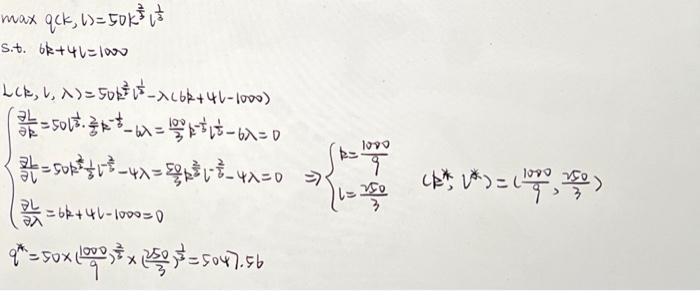 max q(k, l) = 50k^{2/3} l^{1/3}
s.t. 6k+4l=1000
L(k, l, λ) = 50k^{2/3} l^{1/3} - λ(6k+4l-1000)
∂L/∂k = 50l^{1/3} · 2/3 k^{-1/3} - 6λ = 100/3 k^{-1/3} l^{1/3} - 6λ = 0
∂L/∂l = 50k^{2/3} 1/3 l^{-2/3} - 4λ = 50/3 k^{2/3} l^{-2/3} - 4λ = 0 ⇒ { k = 1000/9 l = 250/3 (k*, l*) = (1000/9, 250/3)
∂L/∂λ = 6k+4l-1000=0
q* = 50 × (1000/9)^{2/3} × (250/3)^{1/3} = 5047.56